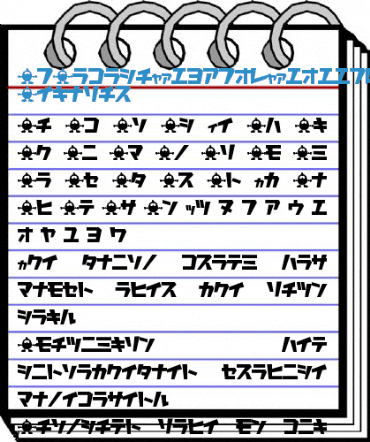 フ ラコラシチャァエヨアフオレャァエオエエワ
イキナリチス
チ コ ソ シ ィイ ハ キ
ク ニ マ ノ リ モ ミ
ラ セ タ ス ト ヵカ ナ
ヒ テ サ ン ッツ ヌ フ ア ウ エ
オ ヤ ユ ヨ ワ
ヵクイ タナニソノ コスラテミ ハラサ
マナモセト ラヒイス カクイ ソチツン
シラキル
モチツニミキソン ハイテ
シニトソラカクイタナイト セスラヒニシイ
マナノイコラサイトル
チソノシチテト ソラヒイ モン コニキ